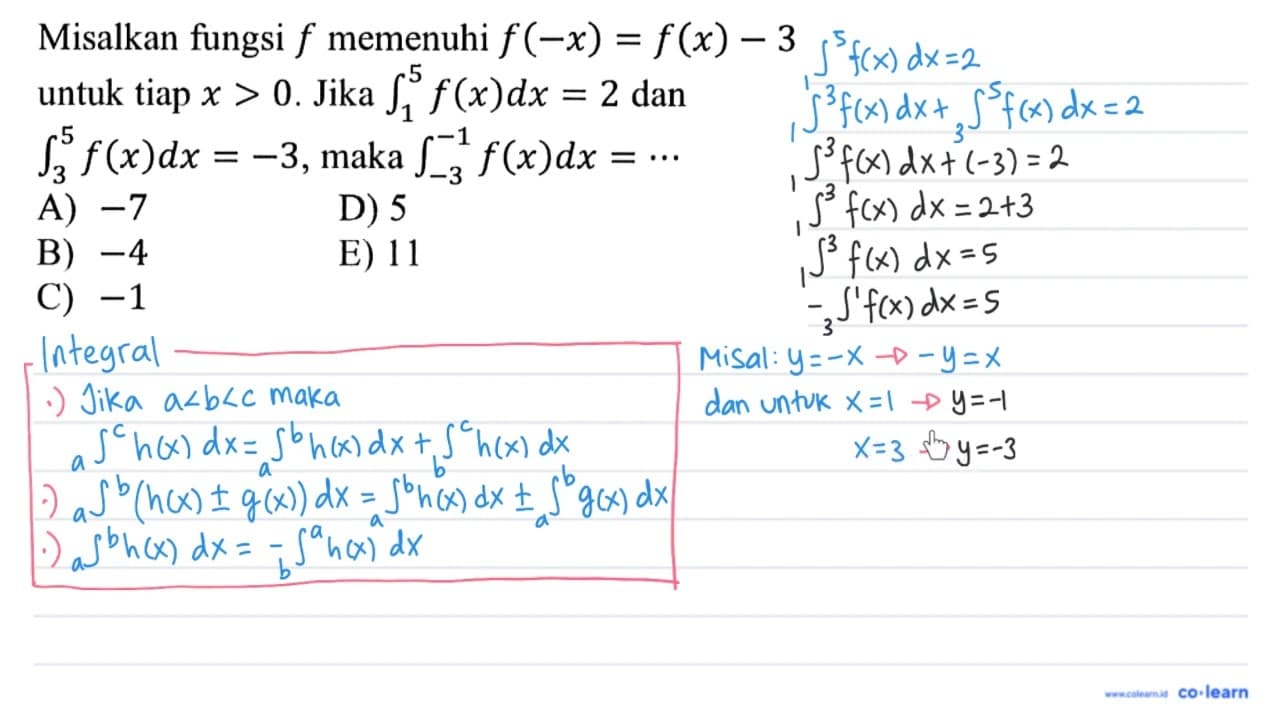 Misalkan fungsi f memenuhi f(−x) = f(x) − 3
untuk tiap x > 0. Jika ∫₁⁵ f(x)dx = 2 dan
∫₃⁵ f(x)dx = −3, maka ∫₋₃⁻¹ f(x)dx = ⋯
A) −7 D) 5
B) −4 E) 11
C) −1
₁∫⁵ f(x) dx = 2
₁∫³ f(x) dx + ₃∫⁵ f(x) dx = 2
₁∫³ f(x) dx + (-3) = 2
₁∫³ f(x) dx = 2+3
₁∫³ f(x) dx = 5
- ₃∫¹ f(x) dx = 5
Integral
·) Jika a<b<c maka
ₐ∫ᶜ h(x) dx = ₐ∫ᵇ h(x) dx + b∫ᶜ h(x) dx
·) ₐ∫ᵇ (h(x) ± g(x)) dx = ₐ∫ᵇ h(x) dx ± ₐ∫ᵇ g(x) dx
·) ₐ∫ᵇ h(x) dx = - b∫ᵃ h(x) dx
Misal: y = -x → -y = x
dan untuk x = 1 → y = -1
x = 3 → y = -3
www.colearn.id co·learn